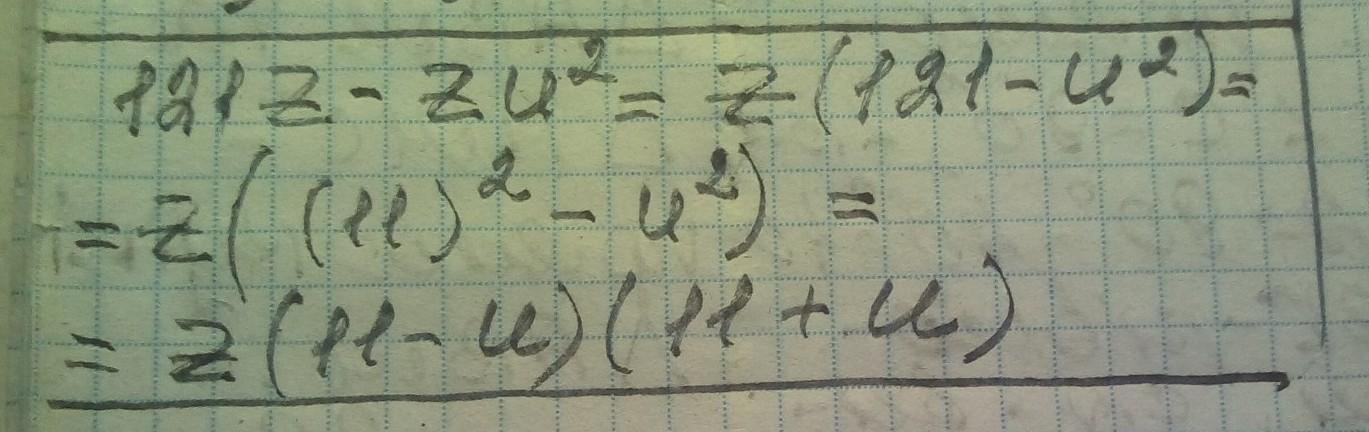 121z - zu² = z(121 - u²) =
= z((11)² - u²) =
= z(11 - u)(11 + u)